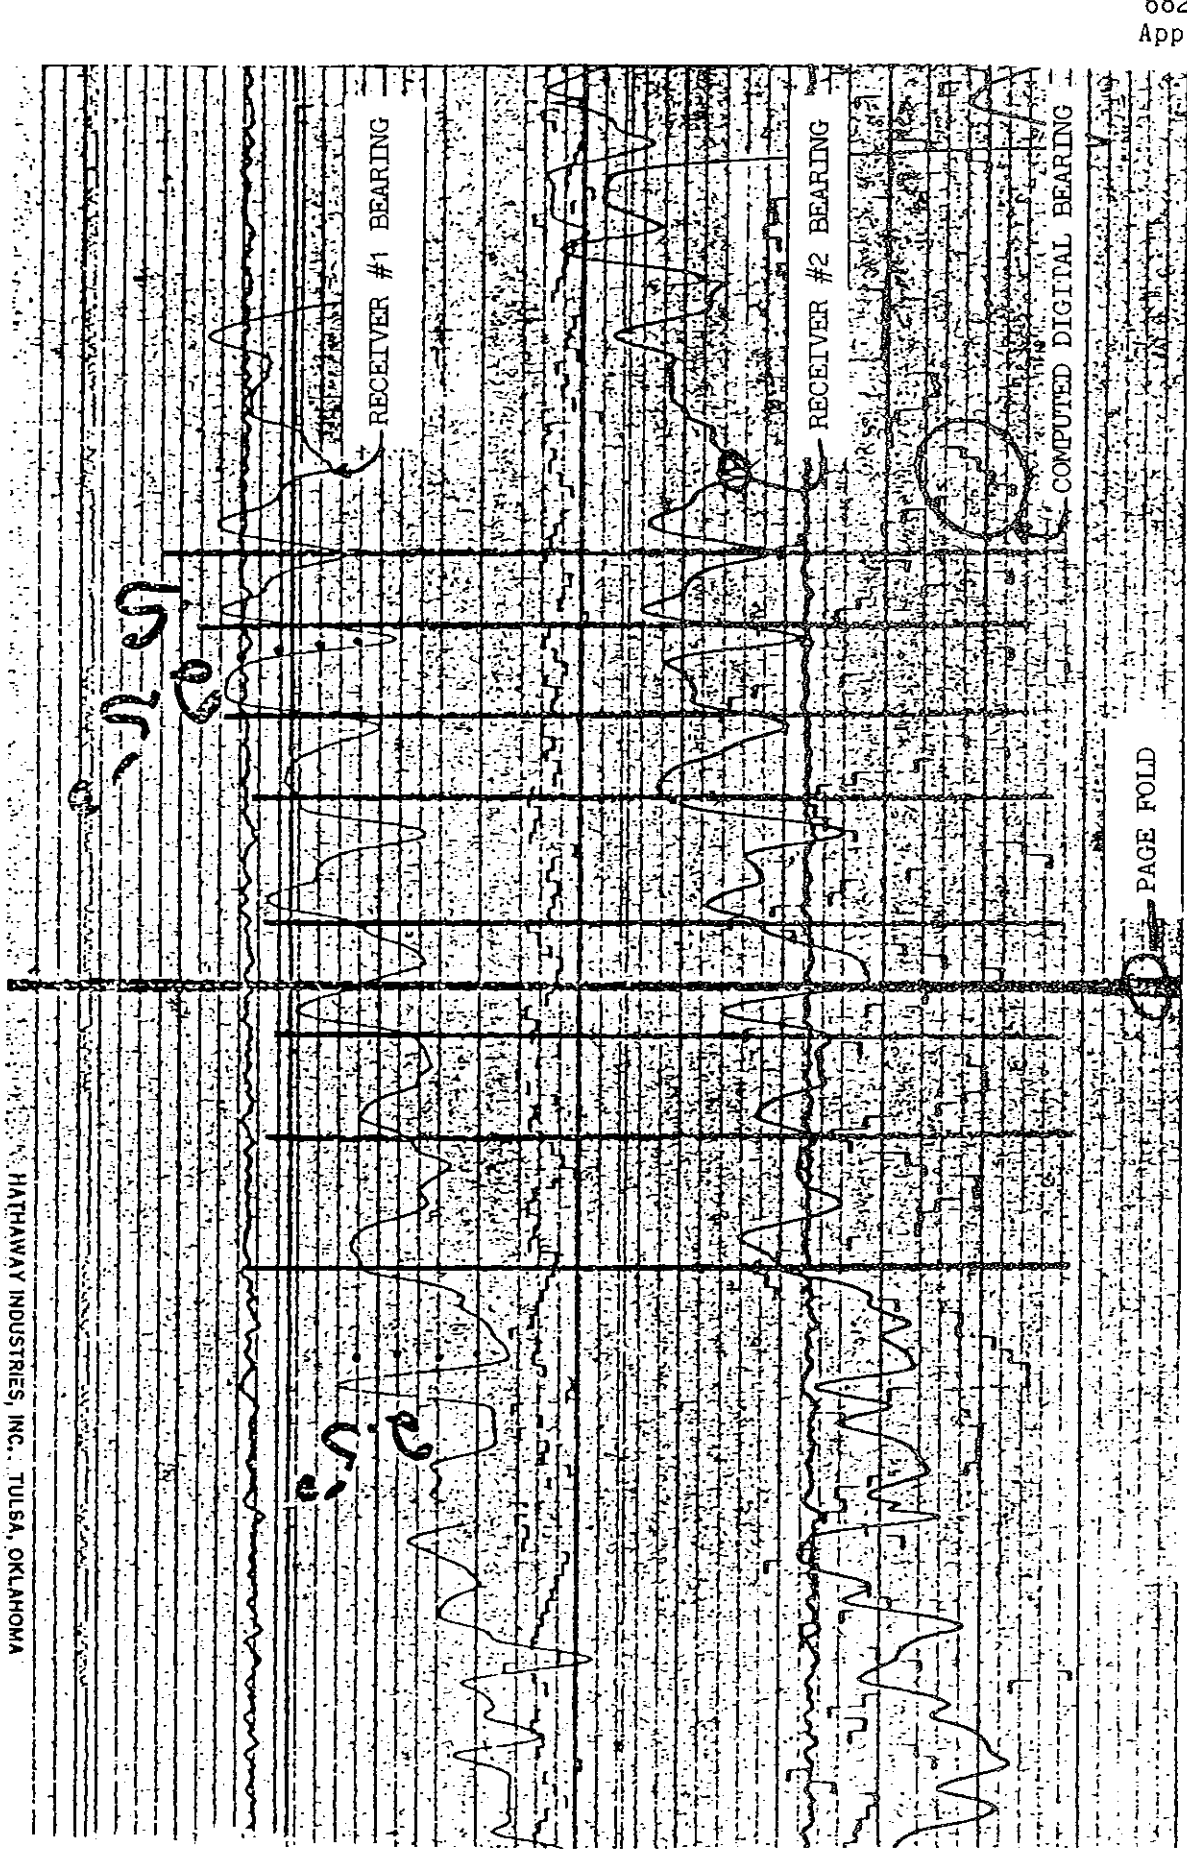 682
App
RECEIVER #1 BEARING
RECEIVER #2 BEARING
COMPUTED DIGITAL BEARING
PAGE FOLD
HATHAWAY INDUSTRIES, INC. TULSA, OKLAHOMA